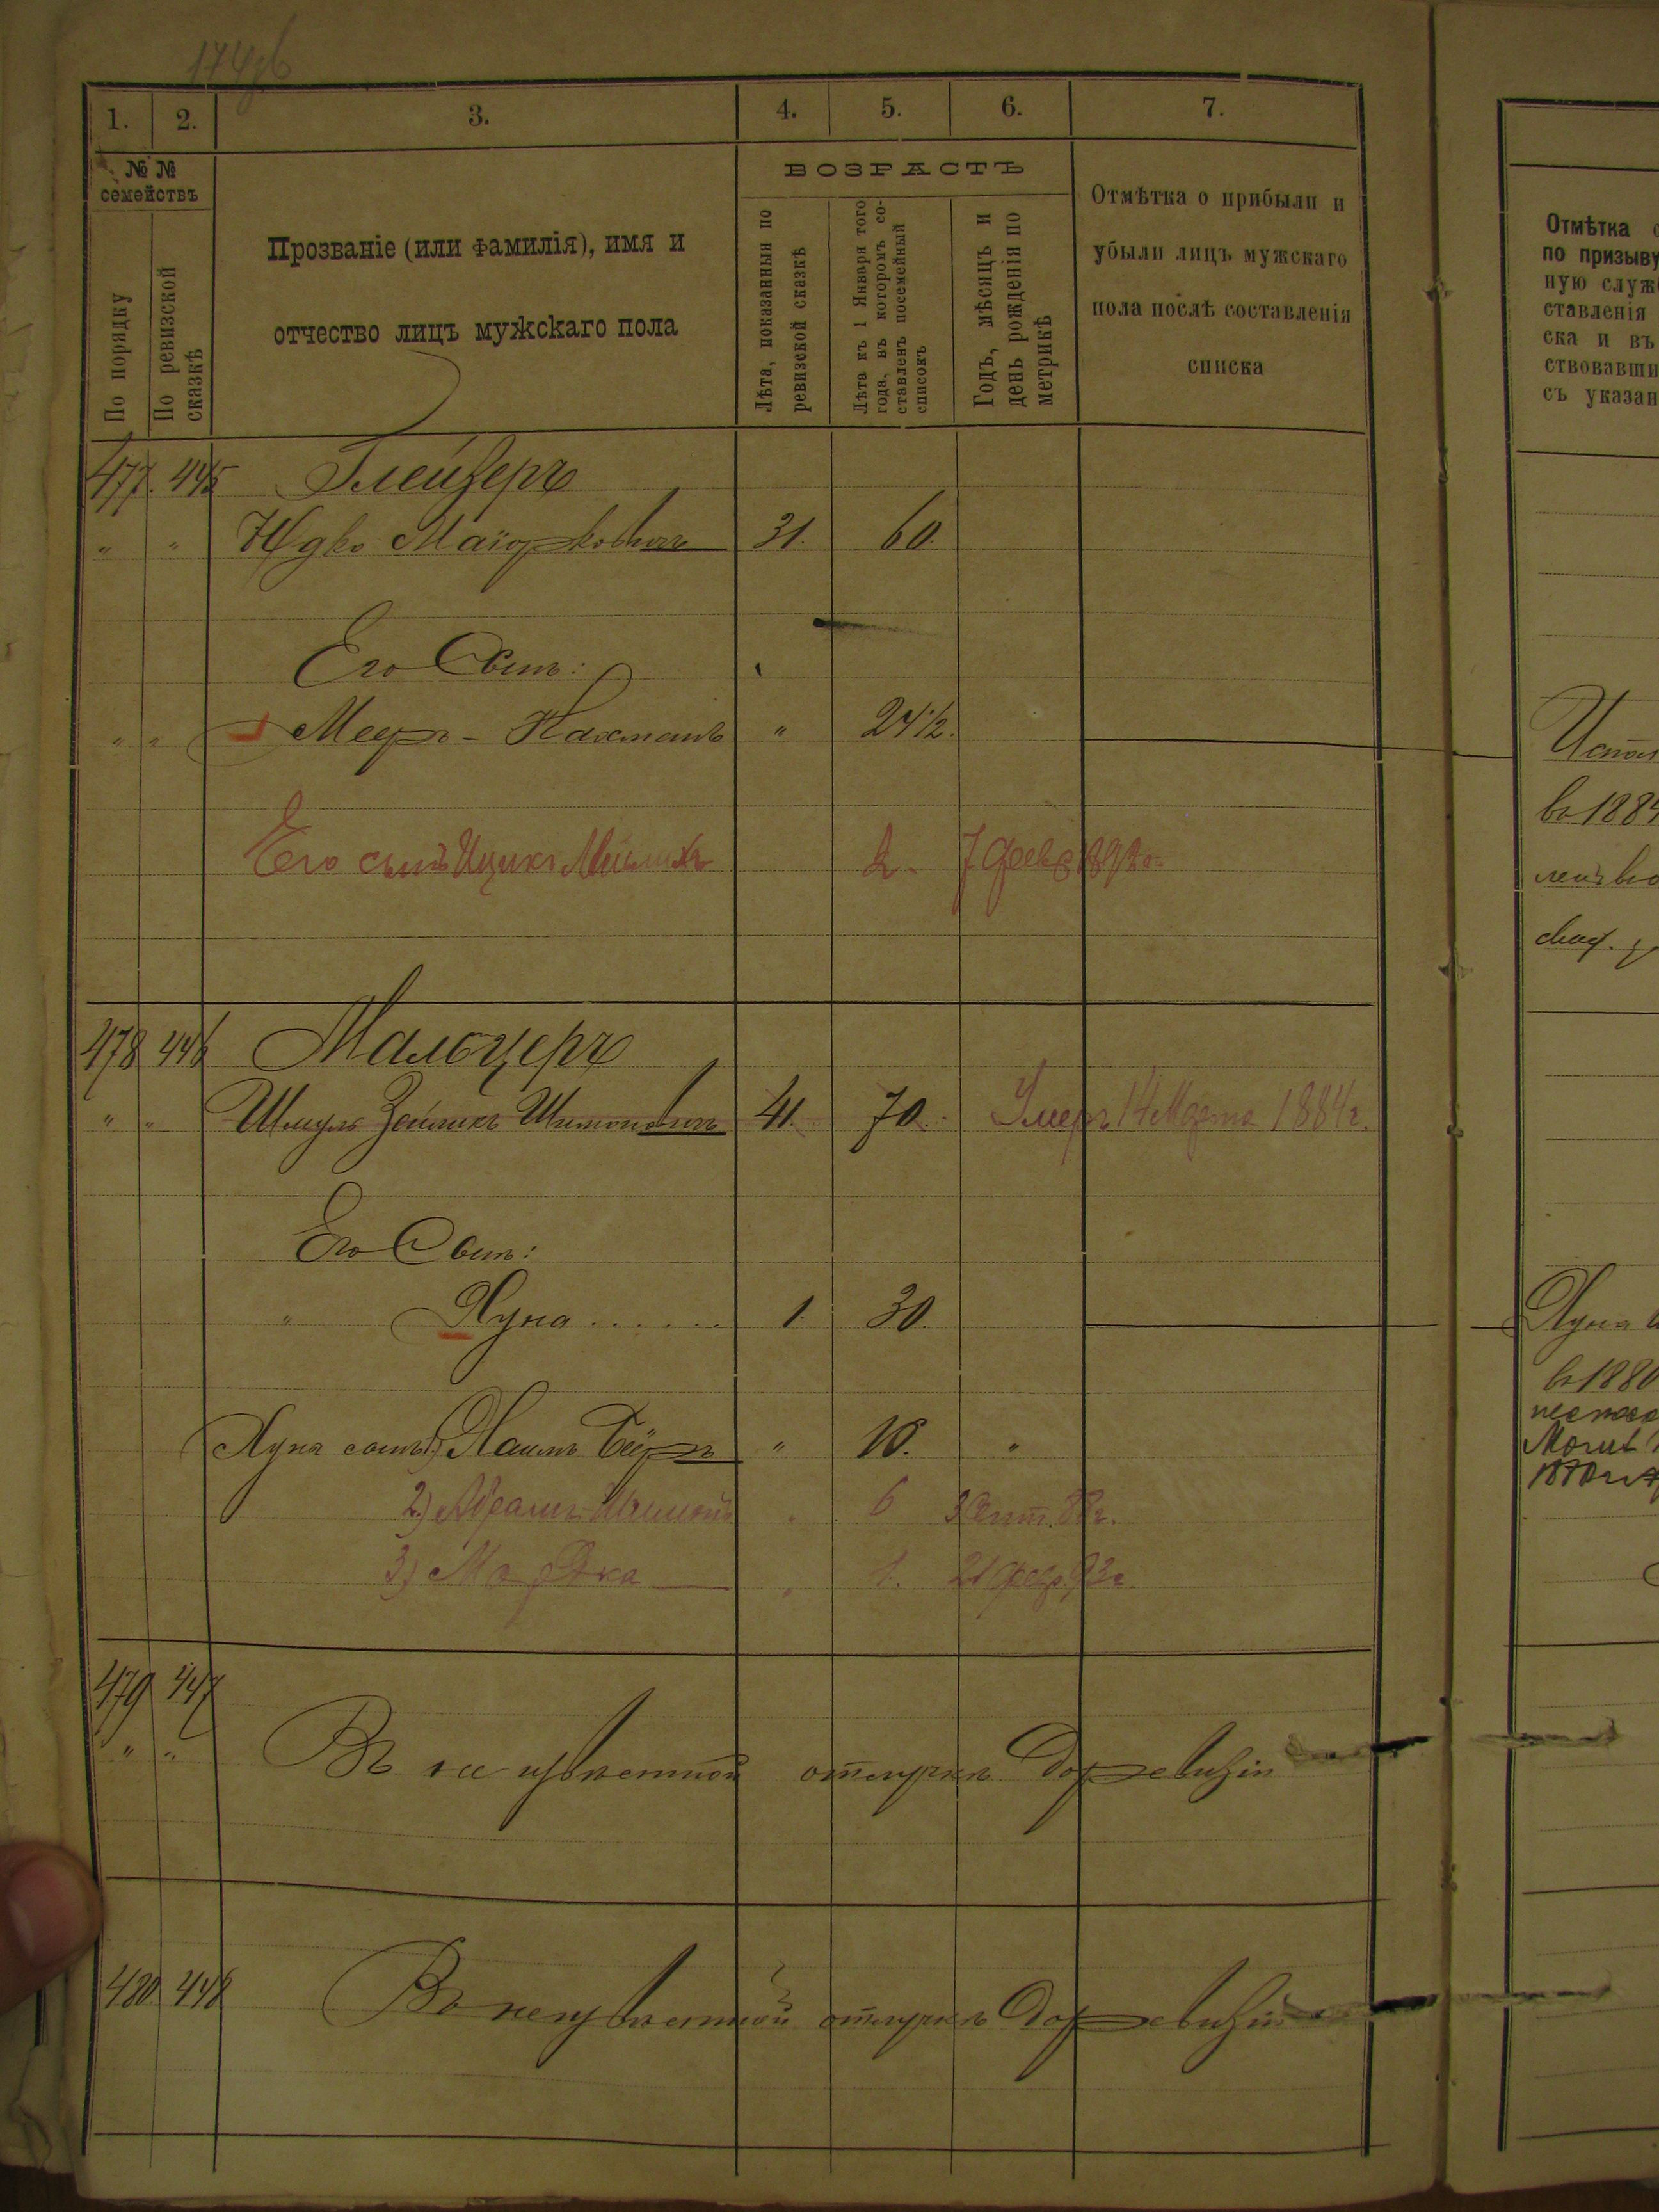 174об
1. 2. 3. 4. 5. 6. 7.
№ №
семействъ
По порядку
По ревизской
сказкѣ
Прозваніе (или фамилія), имя и
отчество лицъ мужскаго пола
ВОЗРАСТЪ
Лѣта, показанныя по
ревизской сказкѣ
Лѣта къ 1 Января того
года, въ которомъ со-
ставленъ посемейный
списокъ
Годъ, мѣсяцъ и
день рожденія по
метрикѣ
Отмѣтка о прибыли и
убыли лицъ мужскаго
пола послѣ составленія
списка
477. 445 Глейзеръ
" " Юдко Маіорковичъ 31. 60.
Его Сынъ:
" " Мееръ - Нахманъ " 24 1/2.
Его сынъ Ицикъ 2. 7 февр 1892г.
478 446 Мальцеръ
" " Шмуль Зейликъ Шимоновичъ 41. 70. Умеръ 14 Марта 1884г.
Его Сынъ:
" Хуна . . . . . . 1. 30.
Хуна сынъ 1) Хаимъ Беръ " 10. "
2) Абрамъ Шимонъ " 6 3 Сент. 88г.
3) Мордка " 1. 21 февр. 93г.
479 447
" " Въ неизвѣстной отлучкѣ до ревизіи
480 448 Въ неизвѣстной отлучкѣ до ревизіи
Отмѣтка
по призыву
ную служ
ставленія
ска и въ
ствовавши
съ указан
въ 1884
Хуна
въ 1880